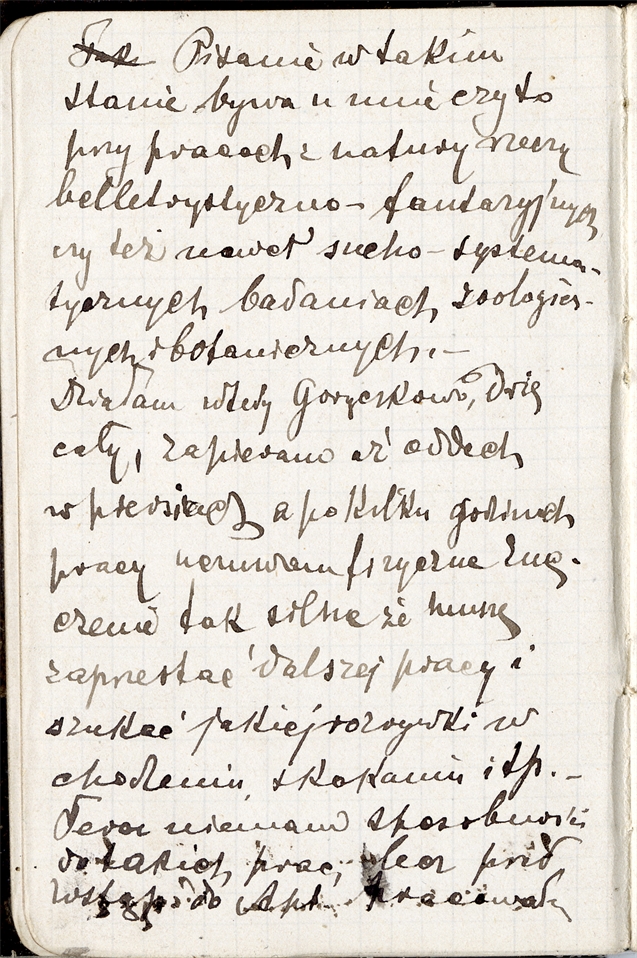 Pisanie w takim
stanie bywa u mnie czy to
przy pracach z natury rzeczy
belletrystyczno- fantazyjnych
czy też nawet sucho-systema-
tycznych badaniach zoologicz-
nych i botanicznych.-
Działam wtedy Gorączkowo, Drżę
cały, zapieram aż oddech
w piersiach a po kilku godzinach
pracy odczuwam fizyczne Zmę-
czenie tak silne że muszę
zaprzestać dalszej pracy i
szukać jakiejś rozrywki w
chodzeniu, skakaniu itp.-
Teraz niemam sposobności
do takich prac, lecz przed
do Apt. pracowałem